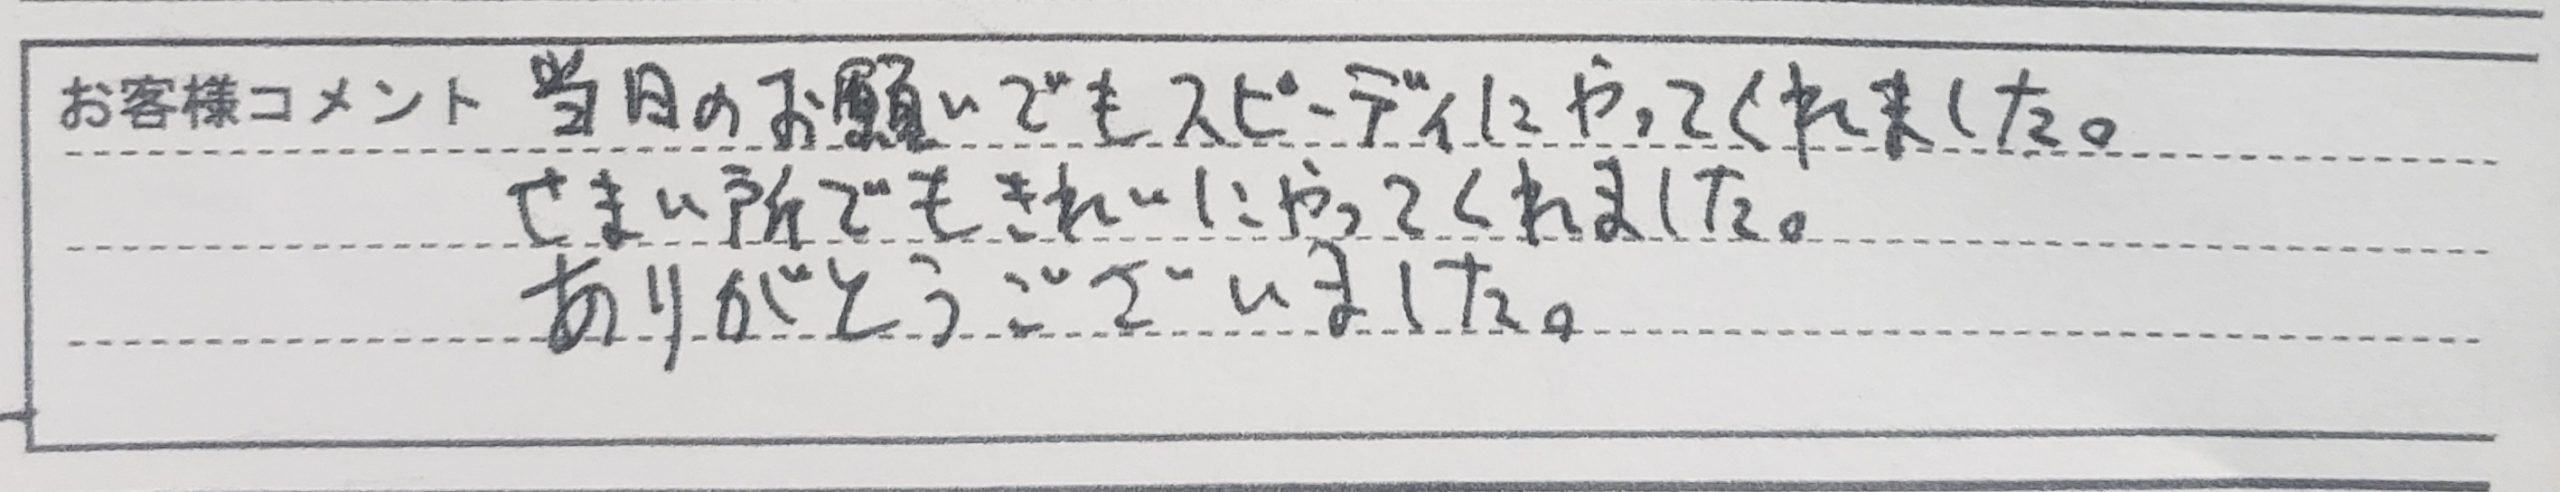 お客様コメント 当日のお願いでもスピーディにやってくれました。
せまい所でもきれいにやってくれました。
ありがとうございました。